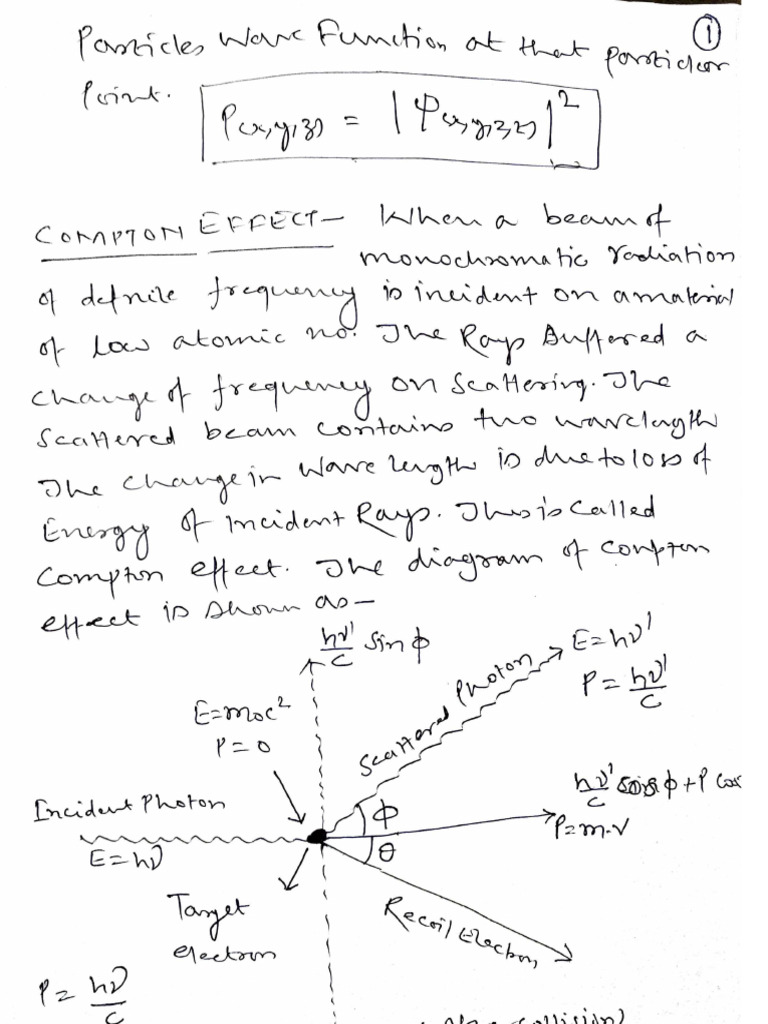 ①
Particles Wave Function at that particlar
Point.
P(x,y,z) = |Ψ(x,y,z,t)|²
COMPTON EFFECT– When a beam of
monochromatic radiation
of defnile frequency is incident on a material
of low atomic no. The Rays Suffered a
change of frequency on scattering. The
scattered beam contains two wavelength
The change in wave length is due to loss of
Energy of incident Rays. This is called
Compton effect. The diagram of compton
effect is shown as –
hν'/c sin ϕ
E = hν'
P = hν'/c
Scattered Photon
E=moc²
P = 0
hν'/c cos ϕ + P cos
Incident Photon
ϕ
P=m.v
E = hν
θ
Target
electron
Recoil Electron
P = hν/c
collision)